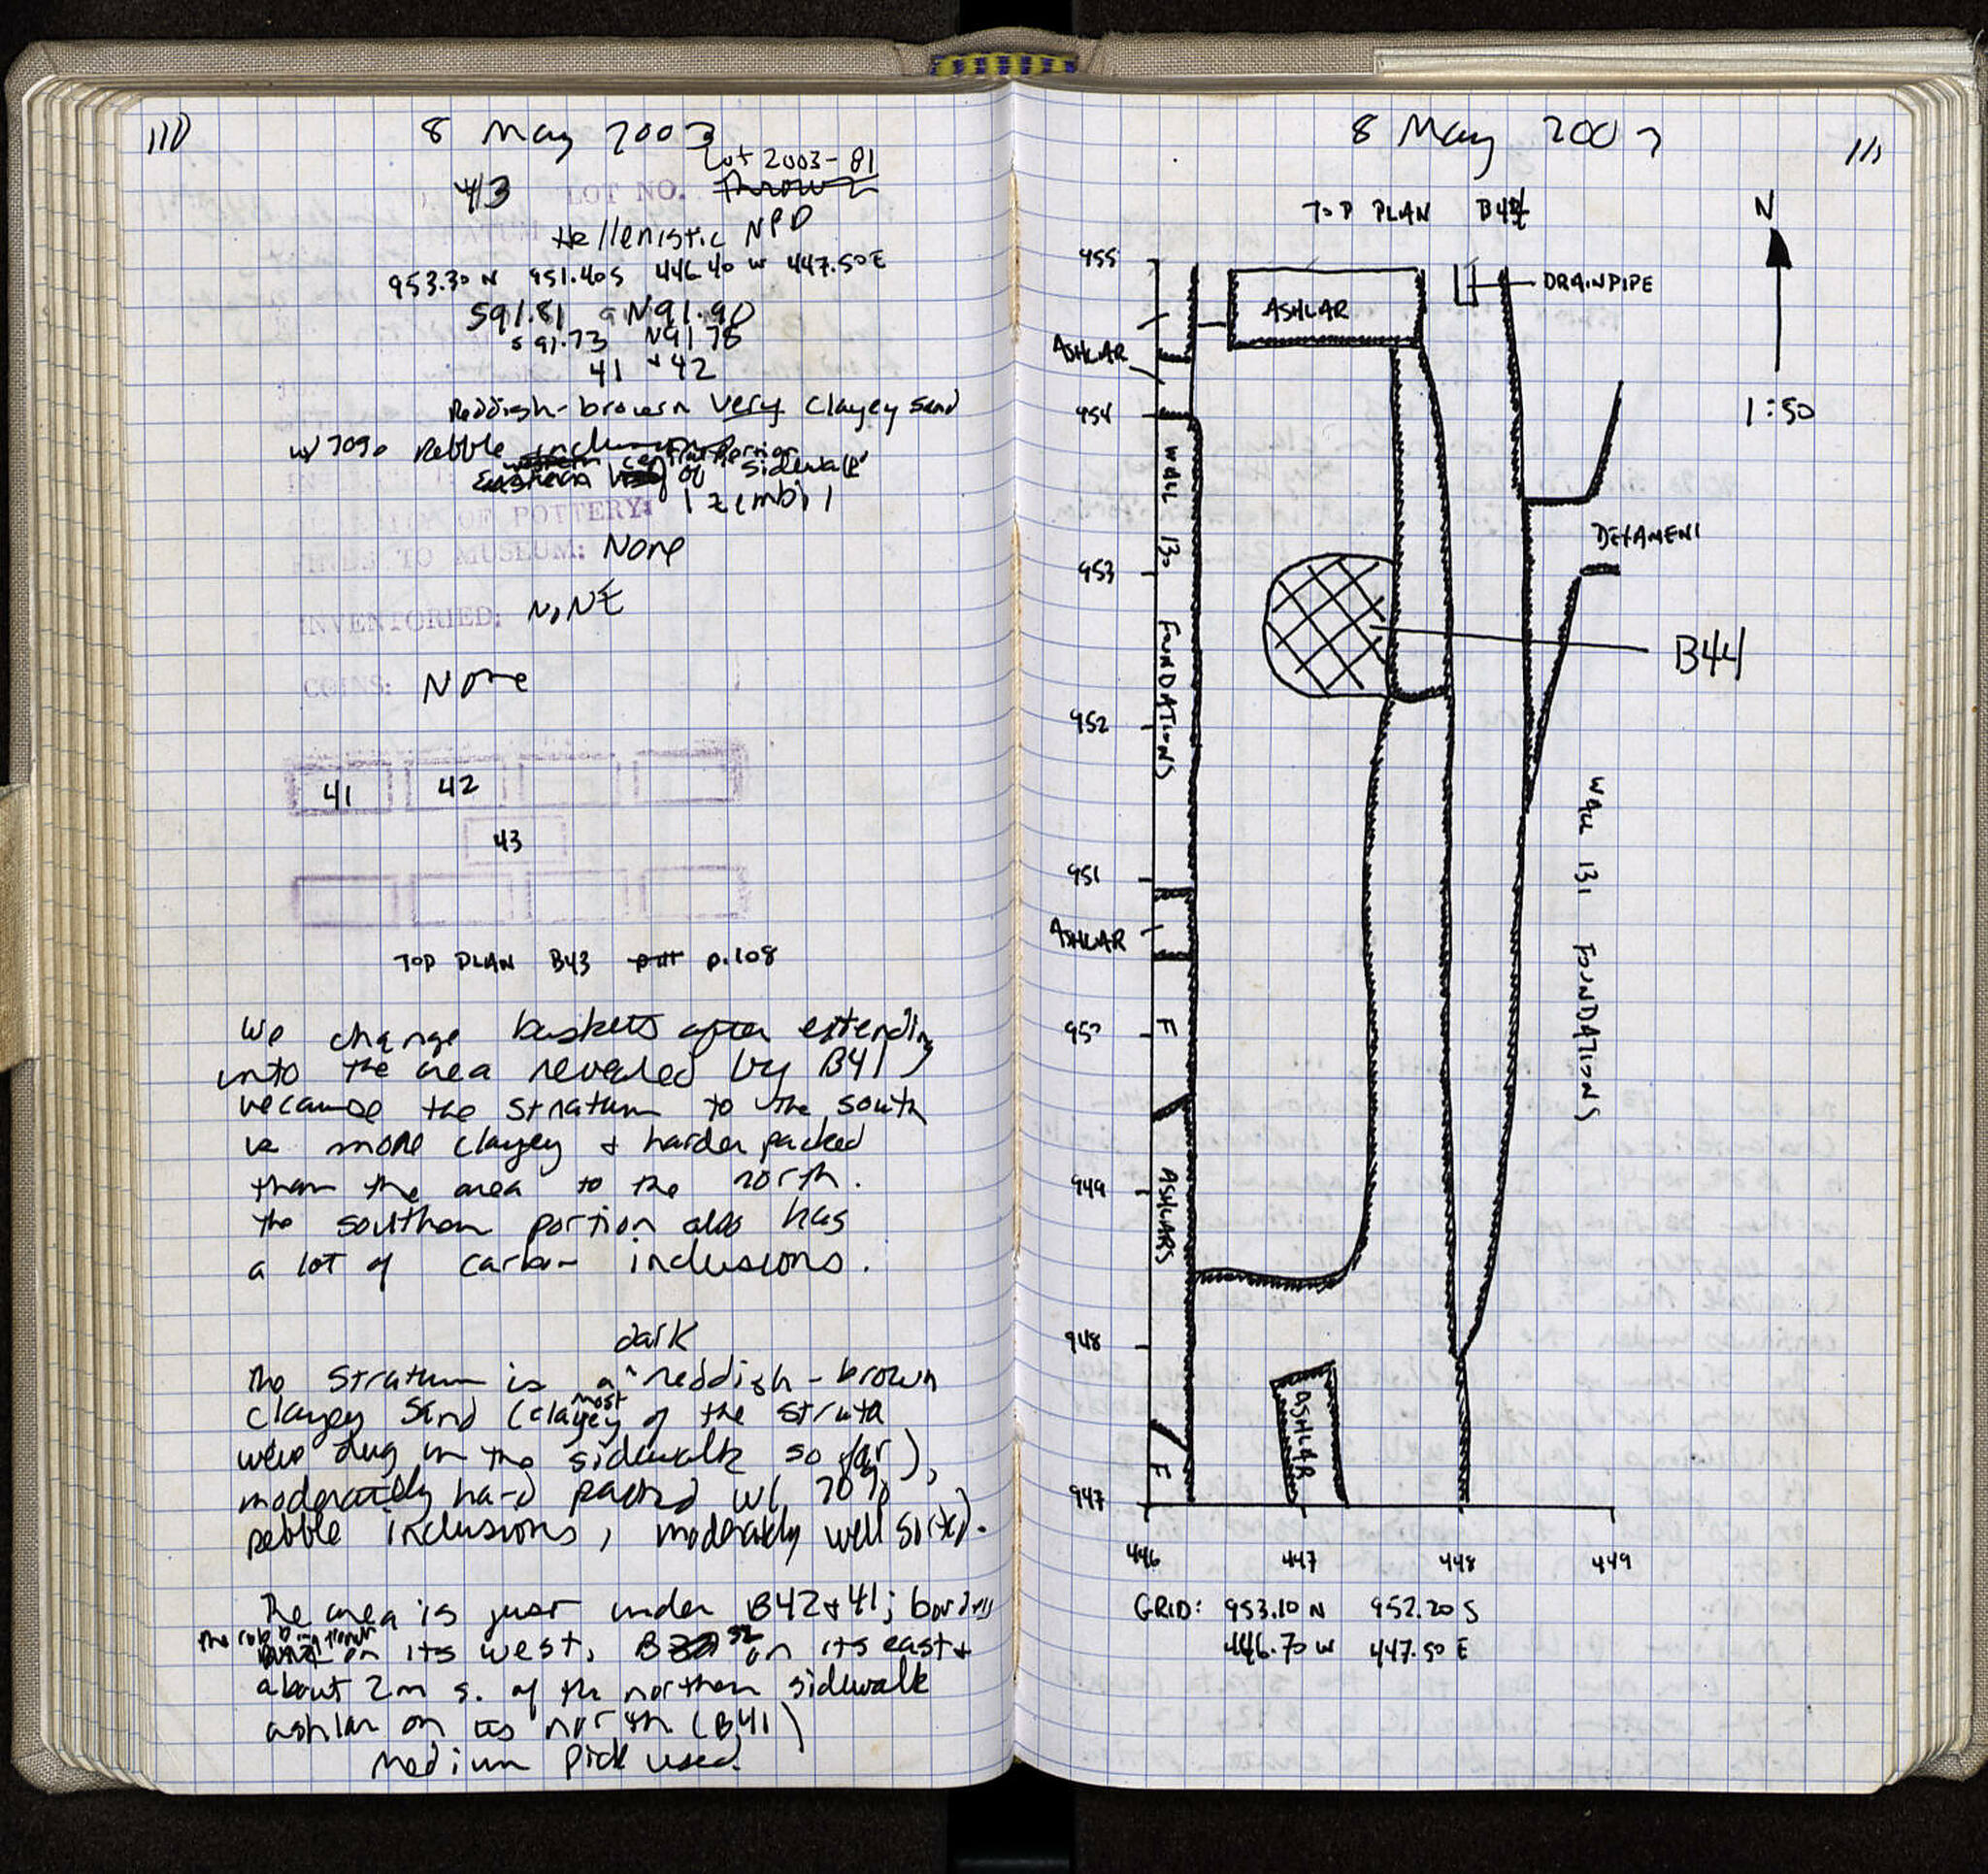 110
8 May 2003
Lot 2003-81
43 LOT NO. Thrown
Hellenistic NPD
953.30 N 951.40 S 446.40 W 447.50 E
S91.81 N91.90
S 91.73 N91.78
41 + 42
Reddish-brown very clayey sand
w/ 70% Pebble inclusions
western central Portion
Eastern of sidewalk
OF POTTERY: 1 zembil
FINDS TO MUSEUM: None
INVENTORIED: NONE
COINS: None
41 42
43
TOP PLAN B43 p.108
We change baskets after extending
into the area revealed by B41,
because the stratum to the south
is more clayey + harder packed
than the area to the north.
The southern portion also has
a lot of carbon inclusions.
dark
The stratum is a ^ reddish-brown
most
clayey sand (clayey of the strata
we've dug in the sidewalk so far),
moderately hard packed w/ 70%
pebble inclusions, moderately well sorted.
The area is just under B42 + 41; borders
the robbing trench
on its west, B 32 on its east +
about 2m s. of the northern sidewalk
ashlar on its north (B41)
Medium pick used.
8 May 2003
111
TOP PLAN B44
N
1:50
955
ASHLAR
DRAINPIPE
ASHLAR
954
WALL 130 FOUNDATIONS
DEXAMENI
953
B44
952
WALL 131 FOUNDATIONS
951
ASHLAR
950
F
949
ASHLARS
948
ASHLAR
F
947
446 447 448 449
GRID: 953.10 N 952.20 S
446.70 W 447.50 E